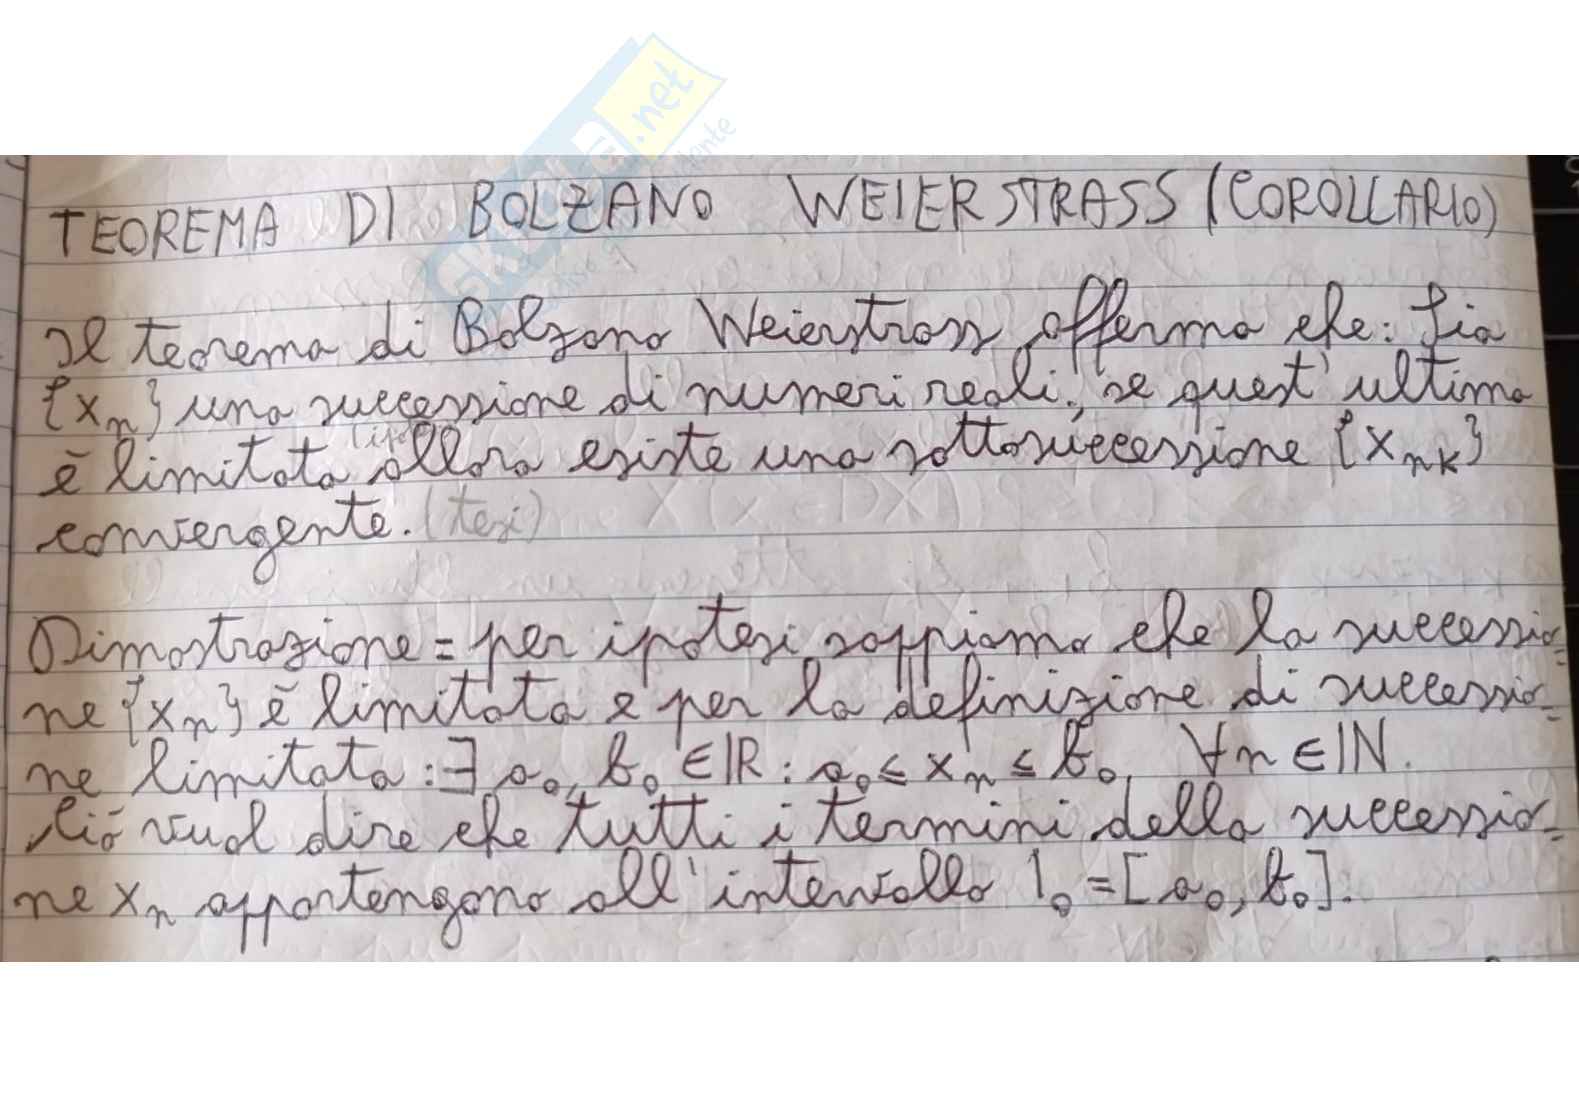 SKUOLA.net
TEOREMA DI BOLZANO WEIERSTRASS (COROLLARIO)
Il teorema di Bolzano Weierstrass afferma che: Sia
{xₙ} una successione di numeri reali, se quest'ultima
(ipo
è limitata allora esiste una sottosuccessione {xₙₖ}
convergente. (tesi)
Dimostrazione = per ipotesi sappiamo che la successio=
ne {xₙ} è limitata e per la definizione di successio=
ne limitata : ∃ a₀, b₀ ∈ ℝ : a₀ ≤ xₙ ≤ b₀, ∀n ∈ ℕ.
Ciò vuol dire che tutti i termini della successio=
ne xₙ appartengono all'intervallo I₀ = [a₀, b₀].